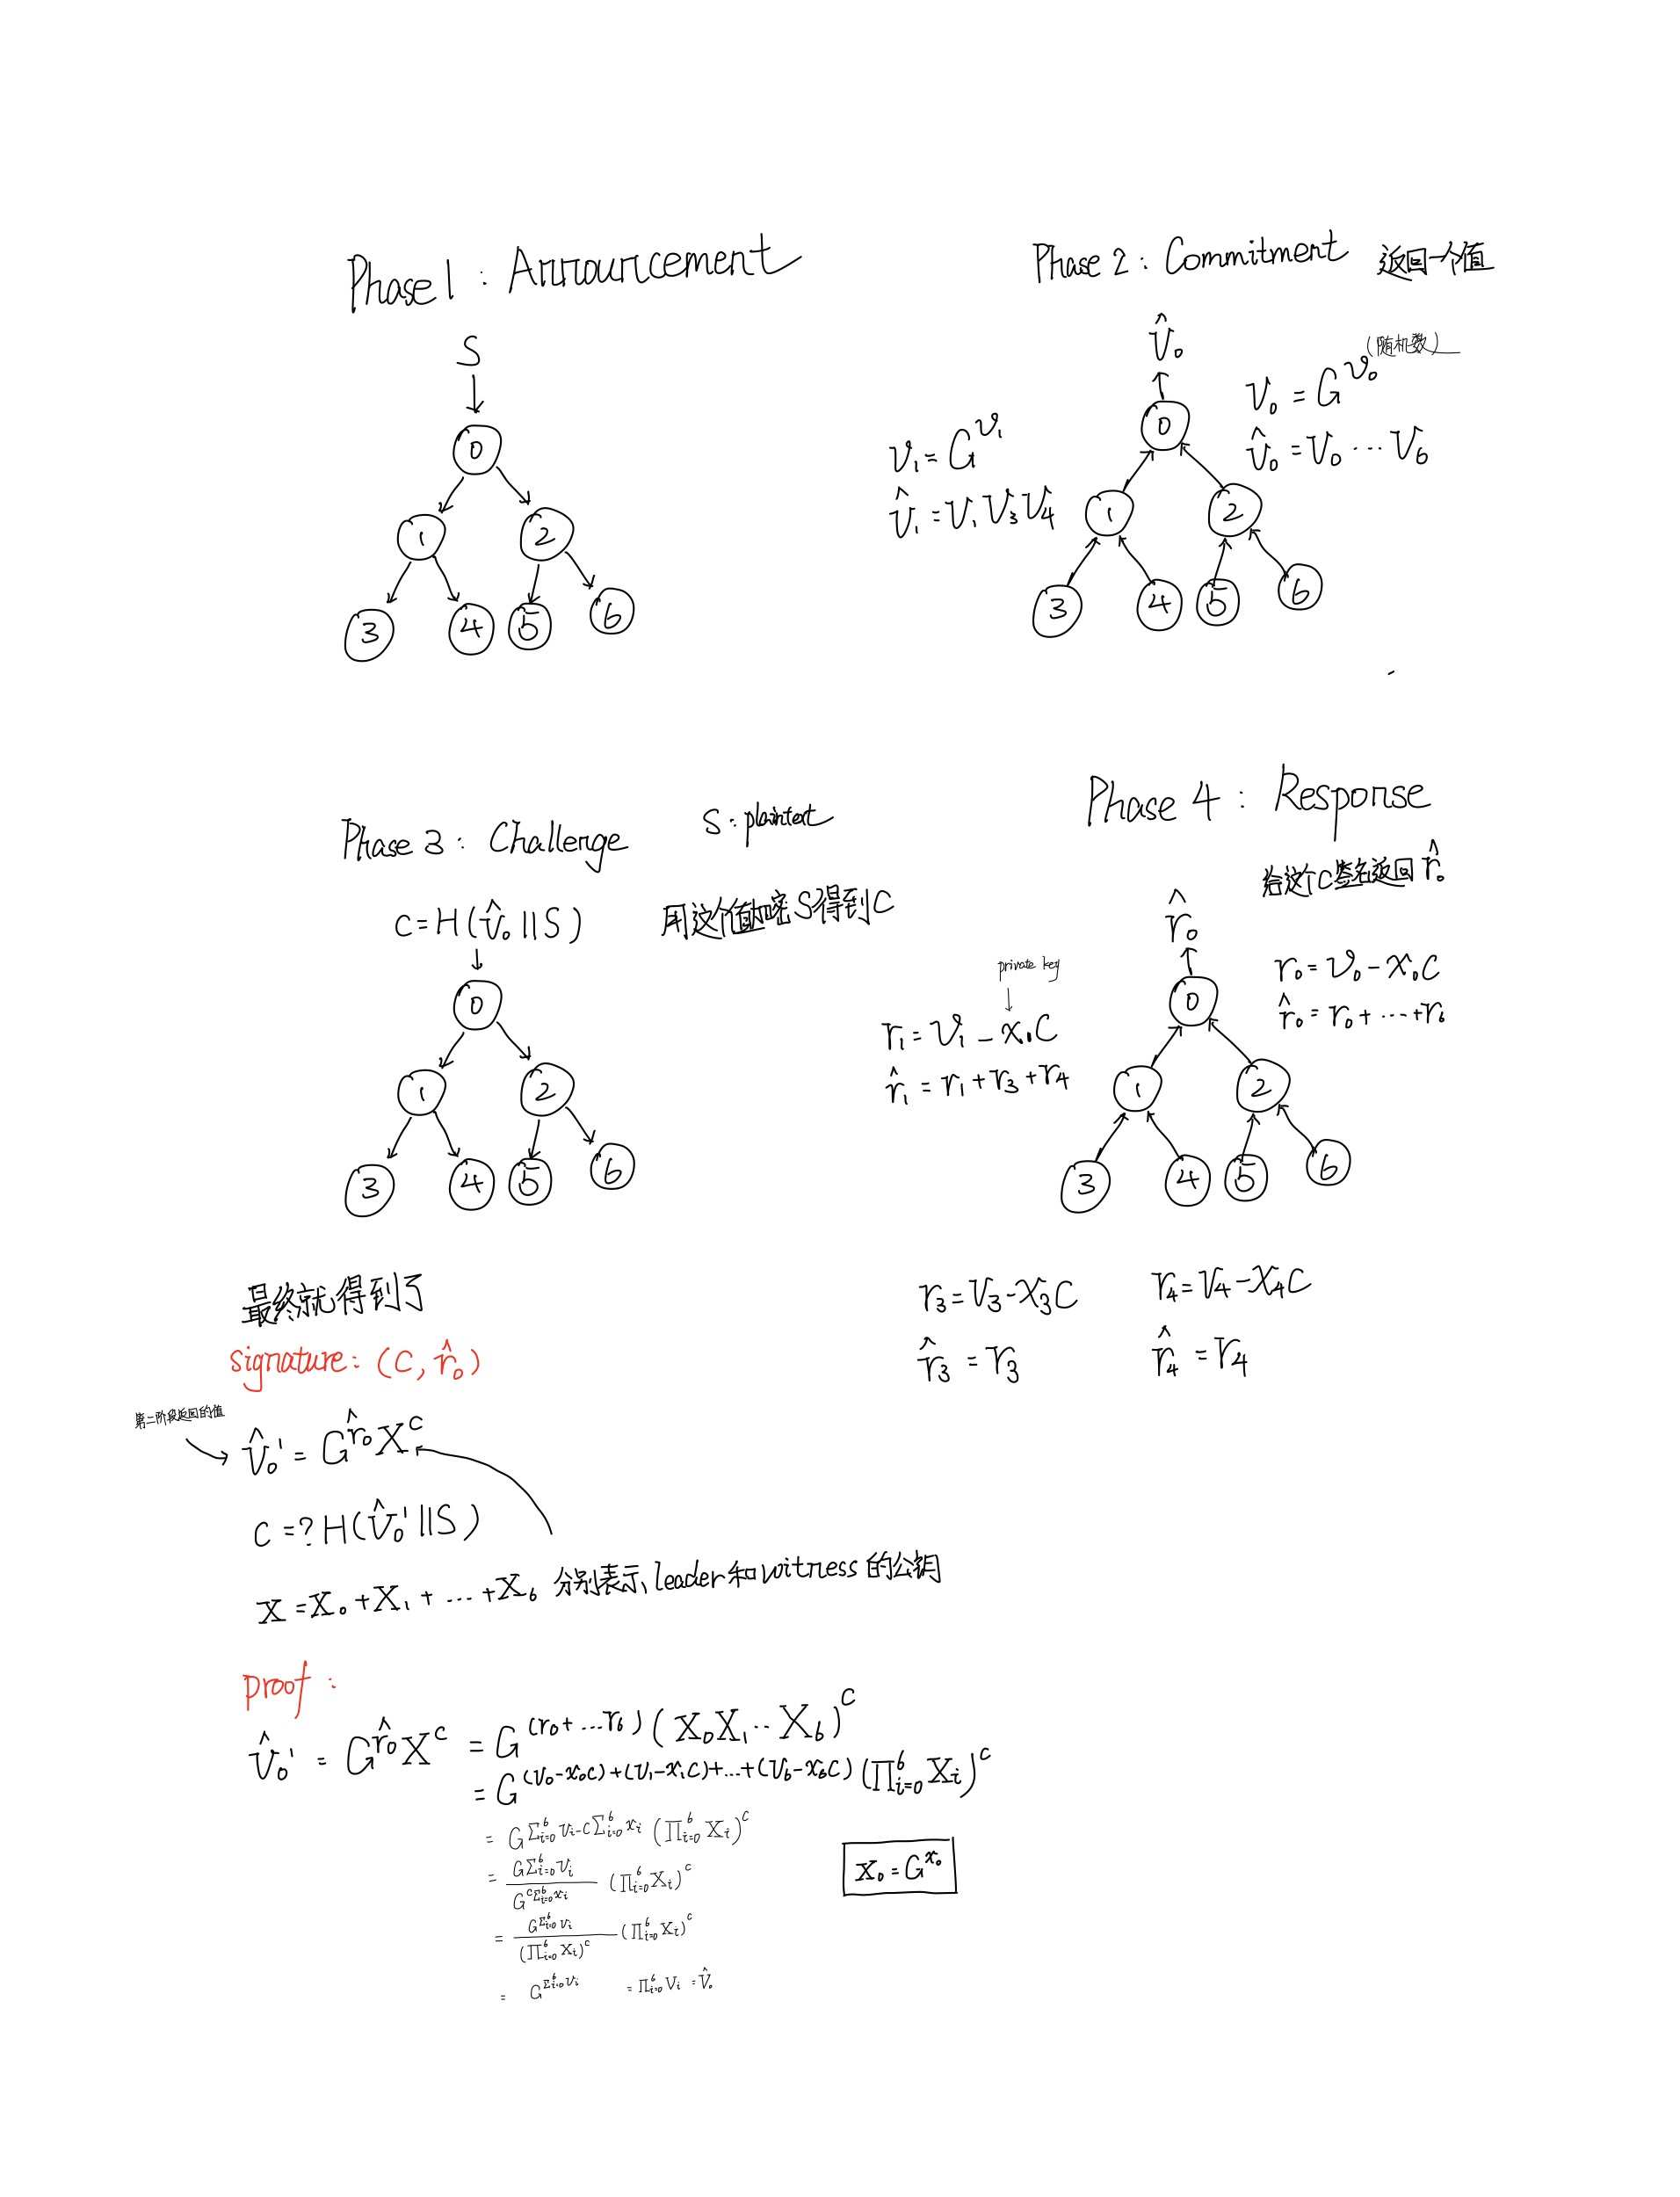 Phase 1 : Announcement
S
0
1 2
3 4 5 6
Phase 2 : Commitment 返回一个值
V̂₀
V₀ = G^v₀ (随机数)
V̂₀ = V₀ ⋯ V₆
V₁ = G^v₁
V̂₁ = V₁V₃V₄
0
1 2
3 4 5 6
Phase 3 : Challenge
S : plaintext
C = H(V̂₀ || S)
用这个值加密S得到C
0
1 2
3 4 5 6
Phase 4 : Response
给这个C签名返回 r̂₀
r̂₀
r₀ = v₀ - x₀C
r̂₀ = r₀ + ⋯ + r₆
private key
r₁ = v₁ - x₁C
r̂₁ = r₁ + r₃ + r₄
0
1 2
3 4 5 6
r₃ = V₃ - x₃C
r̂₃ = r₃
r₄ = V₄ - x₄C
r̂₄ = r₄
最终就得到了
signature: (C, r̂₀)
第二阶段返回的值
V̂₀' = G^r̂₀ X^C
C =? H(V̂₀' || S)
X = X₀ + X₁ + … + X₆ 分别表示 leader和witness的公钥
proof :
V̂₀' = G^r̂₀ X^C = G^(r₀+…r₆) (X₀X₁‥X₆)^C
= G^(V₀-x₀C)+(V₁-x₁C)+…+(V₆-x₆C) (∏_{i=0}^6 X_i)^C
= G^{∑_{i=0}^6 v_i - C∑_{i=0}^6 x_i} (∏_{i=0}^6 X_i)^C
= G^{∑_{i=0}^6 v_i} / G^{C∑_{i=0}^6 x_i} (∏_{i=0}^6 X_i)^C
= G^{∑_{i=0}^6 v_i} / (∏_{i=0}^6 X_i)^C (∏_{i=0}^6 X_i)^C
= G^{∑_{i=0}^6 v_i} = ∏_{i=0}^6 V_i = V̂₀
X₀ = G^x₀